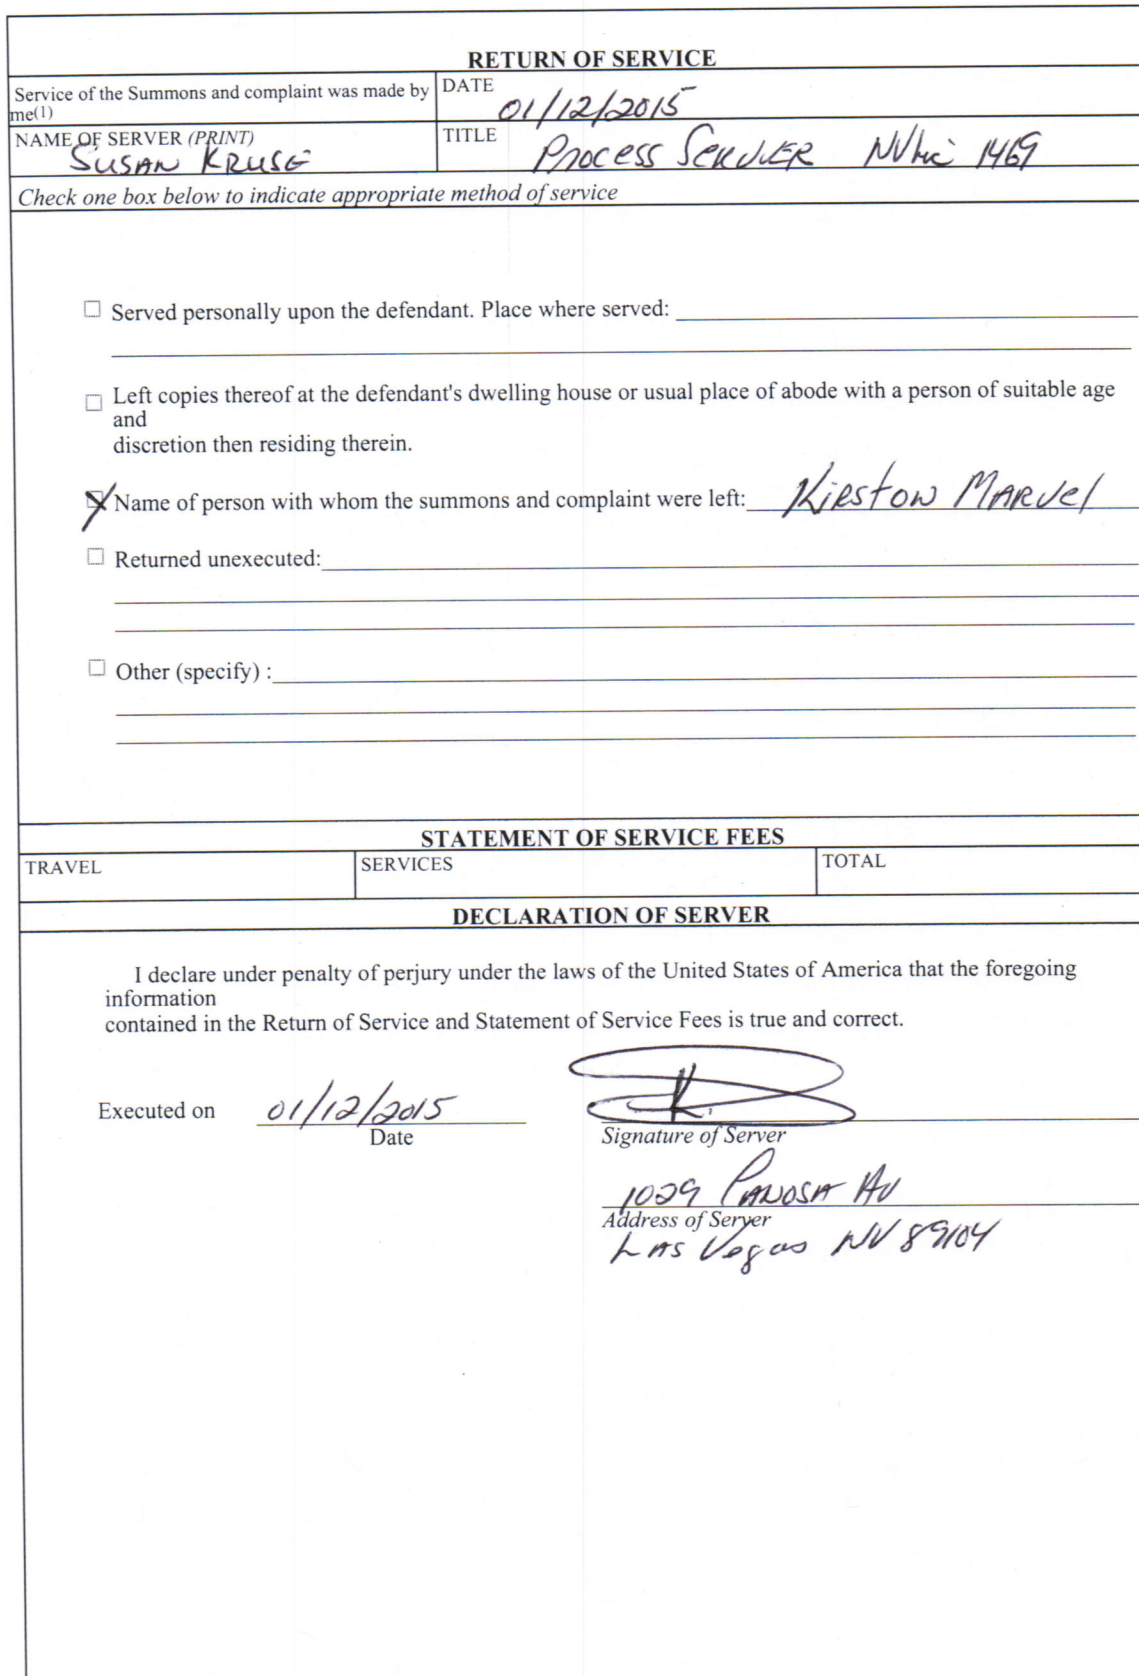 RETURN OF SERVICE
Service of the Summons and complaint was made by
me(1)
DATE
01/12/2015
NAME OF SERVER (PRINT)
SUSAN KRUSE
TITLE
Process Server NV Lic 1469
Check one box below to indicate appropriate method of service
☐ Served personally upon the defendant. Place where served:
☐ Left copies thereof at the defendant's dwelling house or usual place of abode with a person of suitable age
and
discretion then residing therein.
☒ Name of person with whom the summons and complaint were left: Kirston Marvel
☐ Returned unexecuted:
☐ Other (specify) :
STATEMENT OF SERVICE FEES
TRAVEL
SERVICES
TOTAL
DECLARATION OF SERVER
I declare under penalty of perjury under the laws of the United States of America that the foregoing
information
contained in the Return of Service and Statement of Service Fees is true and correct.
Executed on 01/12/2015
Date
Signature of Server
1029 Av
Address of Server
Las Vegas NV 89104